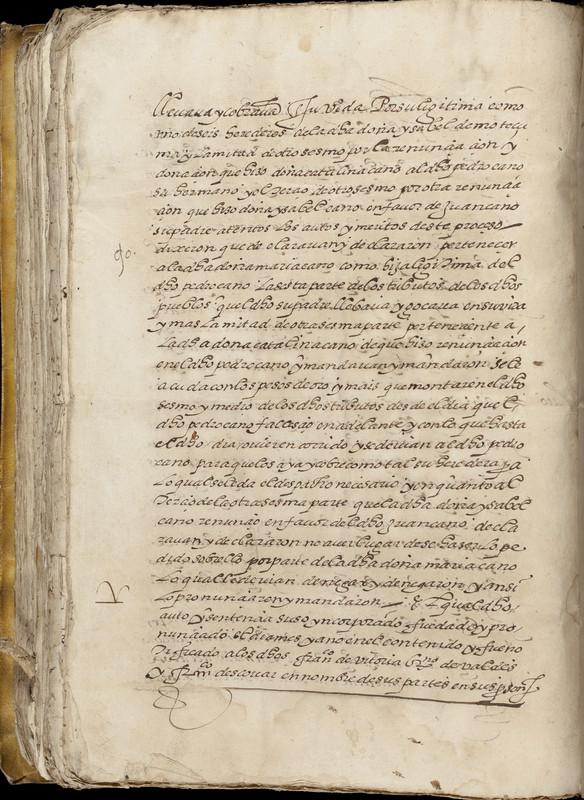 llevava y cobrava en su vida por su ligitima como
uno de seis herederos de la dha doña ysabel de motecu
ma y la mitad de otro sesmo por la renunciaçion y
donaçion que hizo doña catalina cano al dho pedro cano
su hermano y el terçio de otro sesmo por otra renuncia
çion que hizo doña ysabel cano en favor de juan cano
su padre atentos los autos y meritos deste proceso
dixeron que declaravan y declararon pertenecer
a la dha doña maria cano como hija ligitima del
dho pedro cano la sesta parte de los tributos de los dhos
pueblos quel dho su padre llebava y gocava en su vida
y mas la mitad de otra sesma parte perteneciente a
la dha doña catalina cano de que hizo renunciaçion
en el dho pedro cano y mandavan y mandaron se le
acuda con los pesos de oro y mais que montaren el dho
sesmo y medio de los dhos tributos desde el dia que el
dho pedro cano falescio en adelante y con lo que hasta
el dho dia ouieren corrido y se devian al dho pedro
cano para que los aya y cobre como tal su heredera pa
lo qual se le da el despacho necesario y en quanto al
terçio de la otra sesma parte que la dha doña ysabel
cano renunçio en favor del dho juan cano decla
ravan y declararon no aver lugar de se haser lo pe
dido sobrello por parte de la dha doña maria cano
lo qual le devian denegar y denegaron y ansi
lo pronunçiaron y mandaron El qual dho
auto y sentençia suso yncorporado fue dado y pro
nunçiado el dia mes y año en el contenido y fue no
tificado a los dhos franco de vitoria de valdes
y franco descovar en nombre de sus partes en sus personas